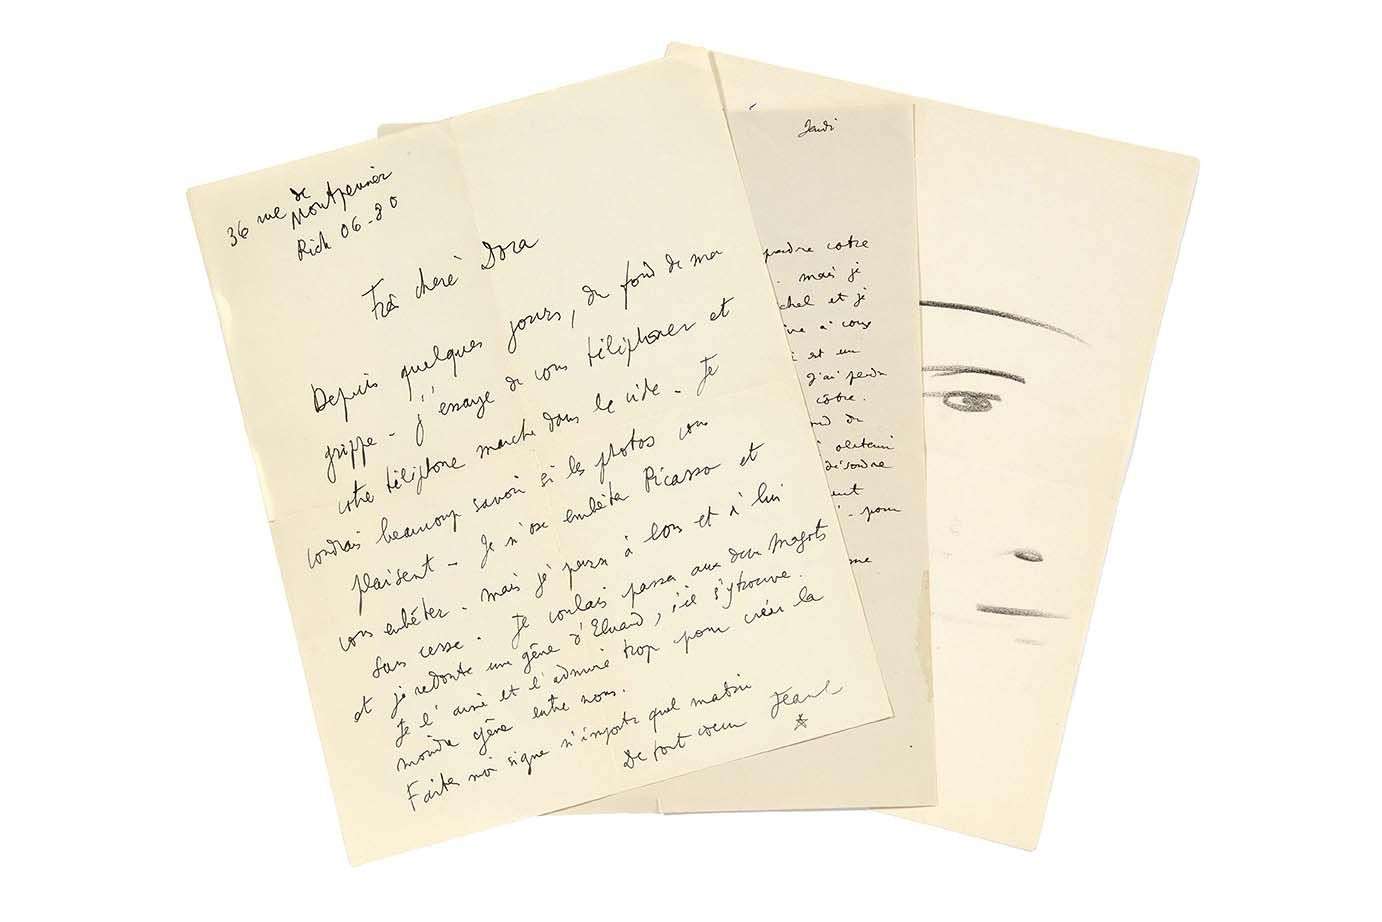 36 rue de
Montpensier
Rich 06-80
Très chère Dora
Depuis quelques jours, du fond de ma
grippe - j'essaye de vous téléphoner et
votre téléphone marche dans le vide - Je
voudrais beaucoup savoir si les photos vous
plaisent - Je n'ose embêter Picasso et
vous embêter - mais je pense à vous et à lui
sans cesse. Je voulais passer aux deux Magots
et je redoute une gêne d'Eluard, s'il s'y trouve.
Je l'aime et l'admire trop pour créer la
moindre gêne entre nous.
Faites moi signe n'importe quel matin
De tout cœur Jean
Jeudi
perdre votre
mais je
et je
à vous
est un
J'ai perdu
côtre.
de
obtenir
désordre
- pour